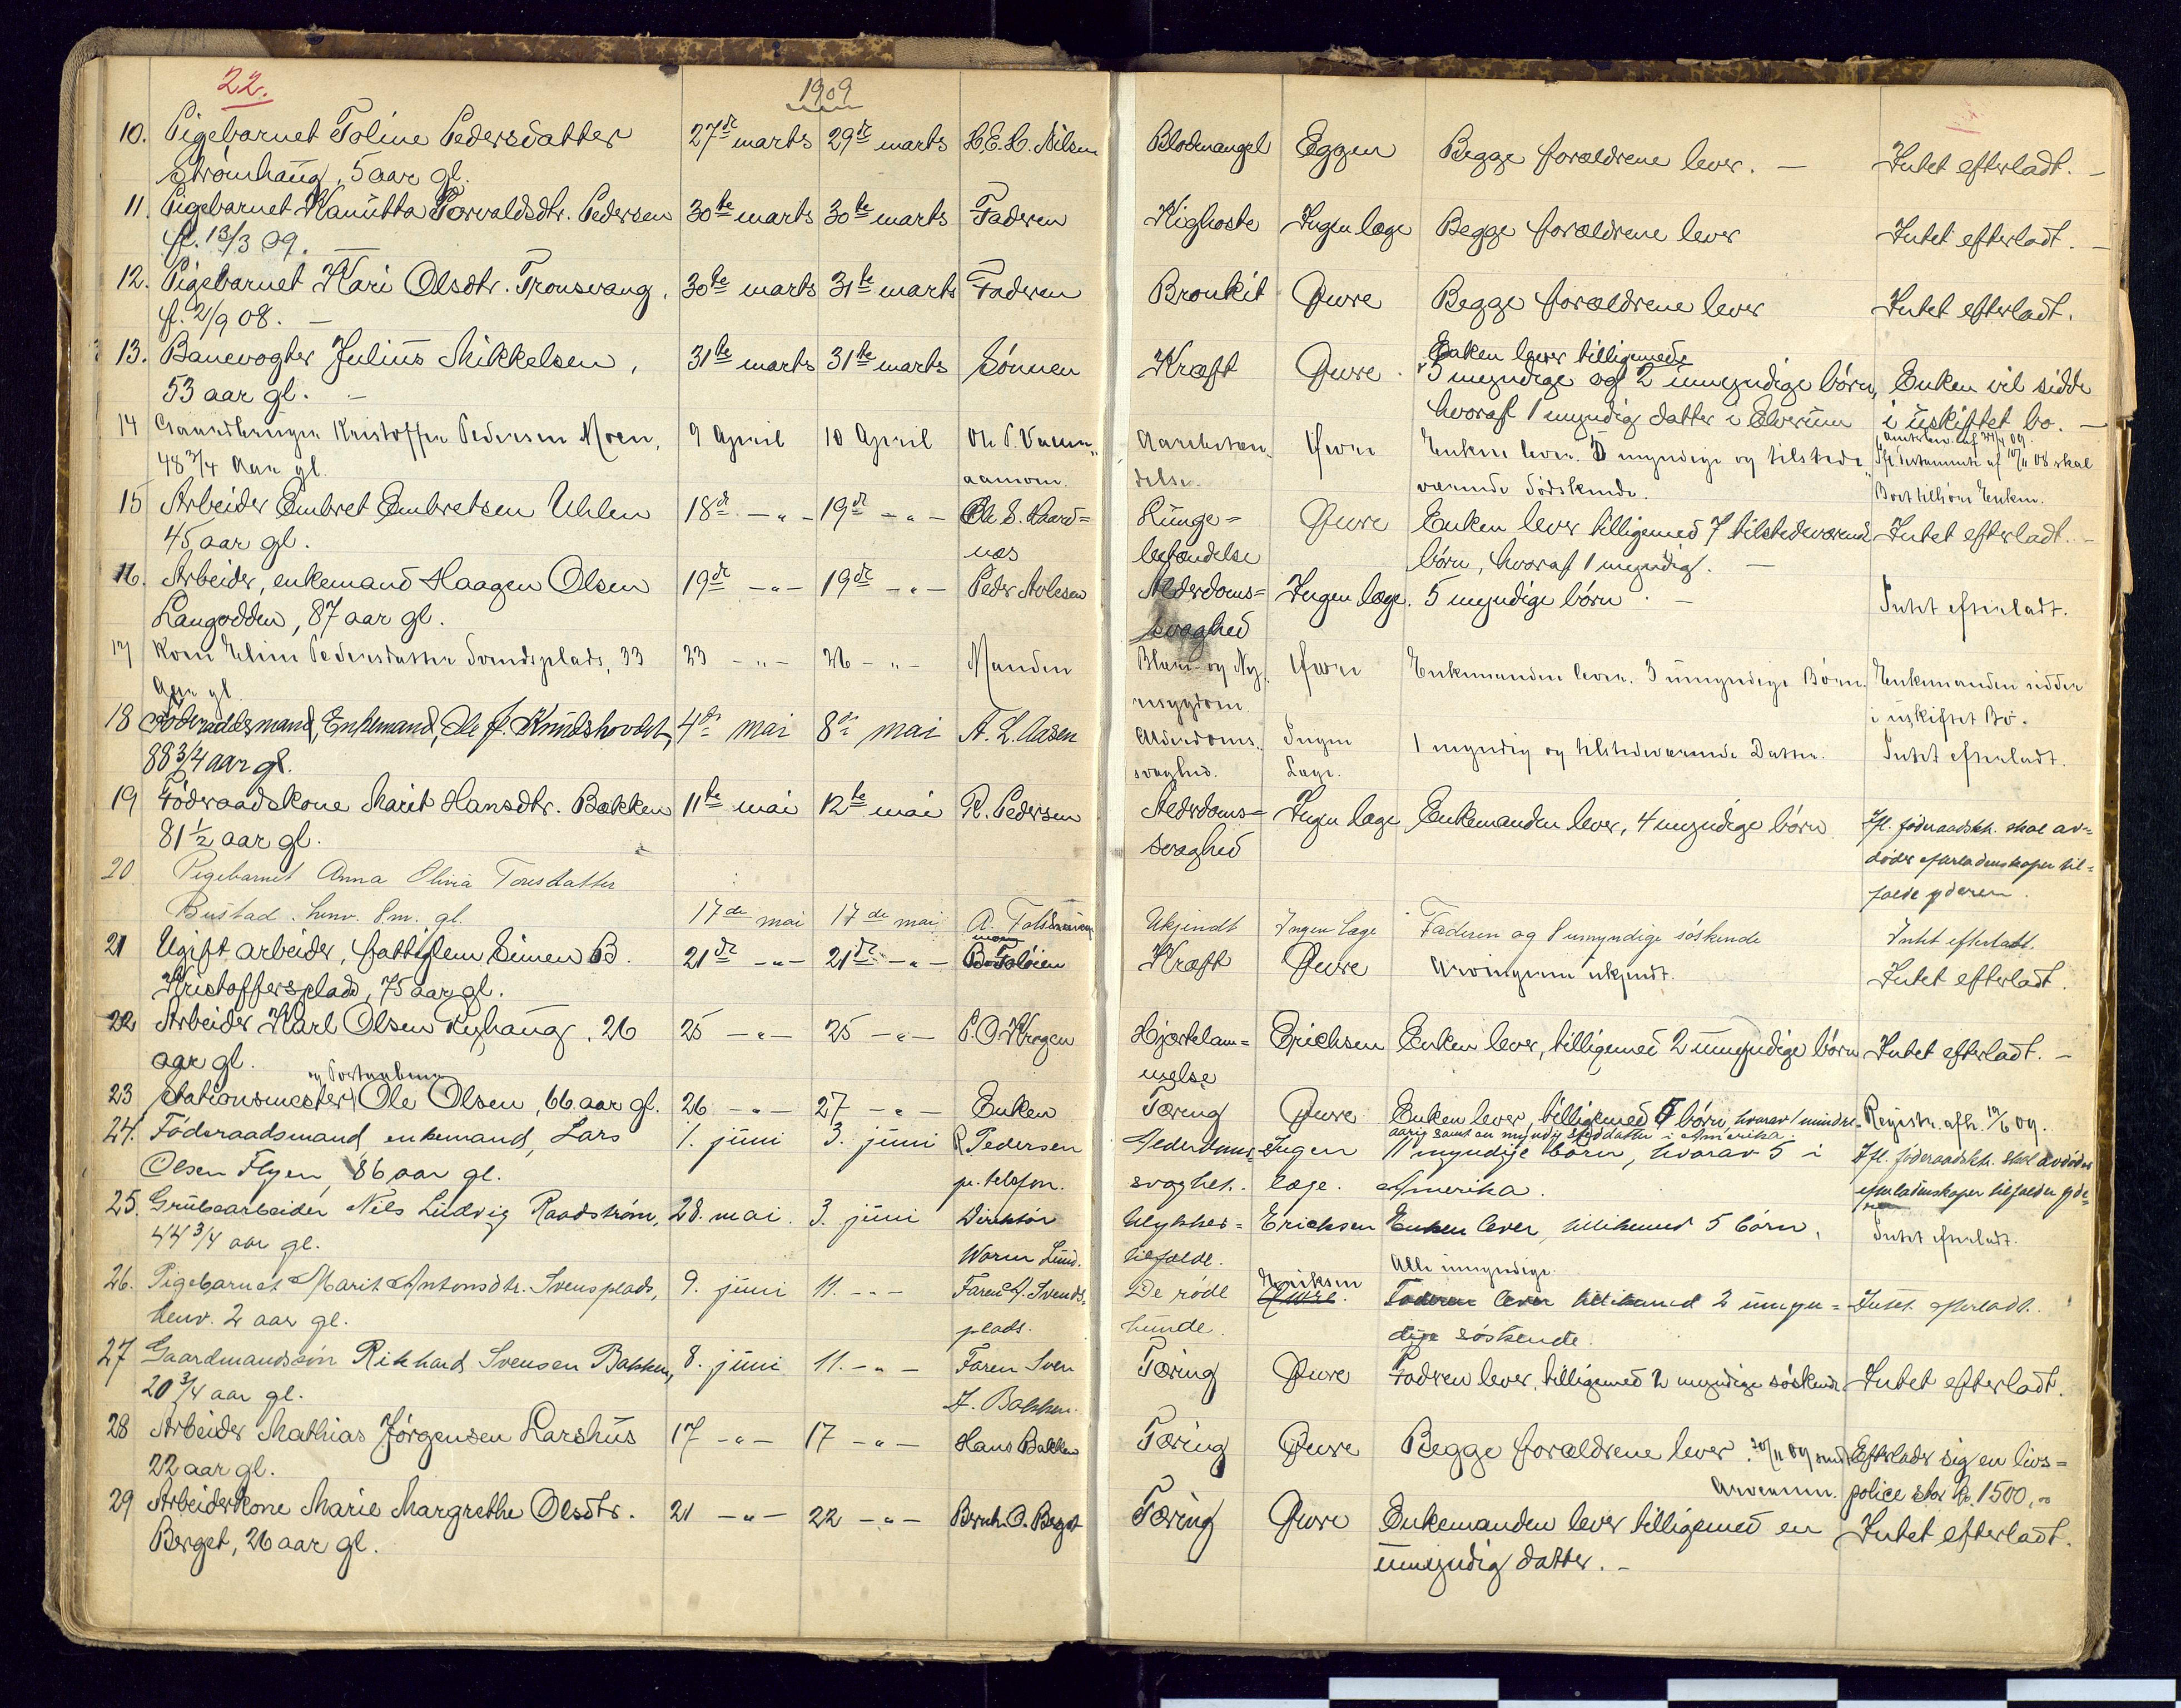 22.
1909
10. Pigebarnet Toline Pedersdatter 27de marts 29de marts H.E.H. Nilsen Blodmangel Eggen Begge forældrene lever. — Intet efterladt. —
Strømhaug, 5 aar gl.
11. Pigebarnet Hanutta Torvaldsdtr. Pedersen 30te marts 30te marts Faderen Kighoste Ingen læge Begge forældrene lever Intet efterladt. —
f. 13/3 09.
12. Pigebarnet Kari Olsdtr. Tronsvang. 30te marts 31te marts Faderen Bronkit Qvre Begge forældrene lever Intet efterladt.
f. 2/9 08. —
13. Banevogter Julius Mikkelsen, 31te marts 31te marts Sønnen Kræft Qvre Enken lever tilligemed
53 aar gl. — 5 myndige og 2 umyndige børn, Enken vil sidde
hvoraf 1 myndig datter i Elverum i uskiftet bo. —
14 Gaardbruger Kristoffer Pedersen Moen, 9 April 10 April Ole P. Enken lever. myndige og tilstede
48 3/4 Aar gl. delse. værende Sødskende. Ifl. Testamente af 10/11 08 skal
Boet tilhøre Enken.
15 Arbeider Embret Embretsen Uhlen 18de — " — 19de — " — Ole S. Haard= Lunge= Qvre Enken lever tilligemed 7 tilstedeværende Intet efterladt. —
45 aar gl. næs betændelse børn, hvoraf 1 myndig. —
16. Arbeider, enkemand Haagen Olsen 19de — " — 19de — " — Peder Avlesen Alderdoms= Ingen læge. 5 myndige børn. — Intet efterladt.
Langodden, 87 aar gl. svaghed
17 Kone Eline Pedersdatter Svendsplads, 33 23 — " — 26 — " — Manden Blære- og Ny, Enkemanden lever. 3 umyndige Børn. Enkemanden sidder
Aar gl. resygdom i uskiftet Bo.
18 Føderaadsmand, Enkemand, Ole J. Knudshovdet, 4de mai 8de mai A. L. Aasen Alderdoms- Ingen 1 myndig og tilstedeværende Datter. Intet efterladt.
88 3/4 aar gl. svaghed. Læge.
19 Föderaadskone Marit Hansdtr. Bakken 11te mai 12te mai R. Pedersen Alderdoms= Ingen læge Enkemanden lever, 4 myndige børn Ifl. föderaadsk. skal av=
81 1/2 aar gl. svaghed dødes efterladenskaper til=
falde yderen.
20 Pigebarnet Anna Olivia Toresdatter
Bustad. henv. 8 m. gl. 17de mai 17de mai A. Ukjendt Ingen Læge Faderen og 8 umyndige søskende Intet efterladt.
21 Ugift arbeider, fattiglem Simen B. 21de — " — 21de — " — Kræft Qvre Arvingerne ukjendt. Intet efterladt.
Kristoffersplads, 75 aar gl.
22 Arbeider Karl Olsen Ryhaug, 26 25 — " — 25 — " — P. O. Krogen Hjertelam= Erichsen Enken lever, tilligemed 2 umyndige børn Intet efterladt. —
aar gl. melse
og Postaabner
23 Stationsmester Ole Olsen, 66 aar gl. 26 — " — 27 — " — Enken Tæring Qvre Enken lever, tilligemed børn, hvorav 1 mindre- Registr. afh. 19/6 09.
aarig samt en myndig steddatter i Amerika.
24. Föderaadsmand, enkemand, Lars 1. juni 3. juni R. Pedersen Alderdoms- Ingen 11 myndige børn, hvorav 5 i Ifl. föderaadsk. skal avdødes
Olsen Flyen, 86 aar gl. pr. telefon. svaghet. læge. Amerika. efterladenskaper tilfalde yde-
ren
25. Grubearbeider Nils Ludvig Raadstrøm, 28. mai. 3. juni Direktör Ulykkes= Erichsen Enken lever, tillikemed 5 börn, Intet efterladt.
44 3/4 aar gl. Worm Lund. tilfælde. Alle umyndige.
26. Pigebarnet Marit Antonsdtr. Svensplads, 9. juni 11. — " — Faren A. Svends- De röde Eriksen Qvre. Faderen lever tillikemed 2 umyn= Intet efterladt.
henv. 2 aar gl. plads. hunde. dige söskende.
27 Gaardmandssön Rikhard Svensen Bakken, 8. juni 11. — " — Faren Sven Tæring Qvre Fadren lever, tilligemed 2 myndige søskende Intet efterladt.
20 3/4 aar gl. J. Bakken.
28 Arbeider Mathias Jørgensen Larshus 17 — " — 17 — " — Hans Bakken Tæring Qvre Begge forældrene lever. 30/11 09 Efterlader sig en livs=
22 aar gl. Arveanm. police stor kr. 1500,—
29 Arbeiderkone Marie Margrethe Olsdtr. 21 — " — 22 — " — Bernh. O. Berget Tæring Qvre Enkemanden lever tilligemed en Intet efterladt.
Berget, 26 aar gl. umyndig datter. —